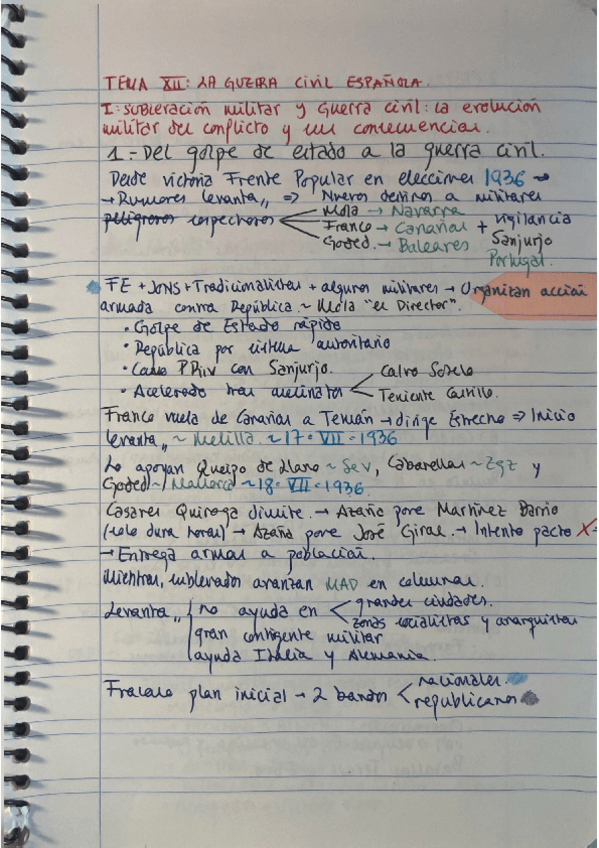 TEMA XII: LA GUERRA CIVIL ESPAÑOLA.
I: SUBLEVACIÓN militar y Guerra civil: la evolución
militar del conflicto y sus consecuencias.
1.- Del golpe de estado a la guerra civil.
Desde victoria Frente Popular en elecciones 1936 →
→ Rumores levanta,, => Nuevos destinos a militares
peligrosos sospechosos
Mola → Navarra
Franco → Canarias + vigilancia
Goded. → Baleares Sanjurjo
Portugal.
FE + JONS + Tradicionalistas + algunos militares → Organizan acción
armada contra República ~ Mola "el Director".
• Golpe de Estado rápido
• República por sistema autoritario
• Sanjurjo.
• Acelerado tras asesinatos
Calvo Sotelo
Teniente Castillo.
Franco vuela de Canarias a Tetuán → dirige Estrecho => Inicio
levanta,, ~ Melilla. ~ 17 · VII · 1936
Lo apoyan Queipo de Llano ~ Sev, Cabanellas ~ Zgz y
Goded ~ Mallorca ~ 18 · VII · 1936
Casares Quiroga dimite. → Azaña pone Martínez Barrio
(solo dura horas) → Azaña pone José Giral. → Intento pacto X
→ Entrega armas a población.
Mientras, sublevados avanzan MAD en columnas.
Levanta,,
no ayuda en
grandes ciudades.
zonas socialistas y anarquistas
gran contingente militar
ayuda Italia y Alemania.
Fracasa plan inicial → 2 bandos
nacionales
republicanos